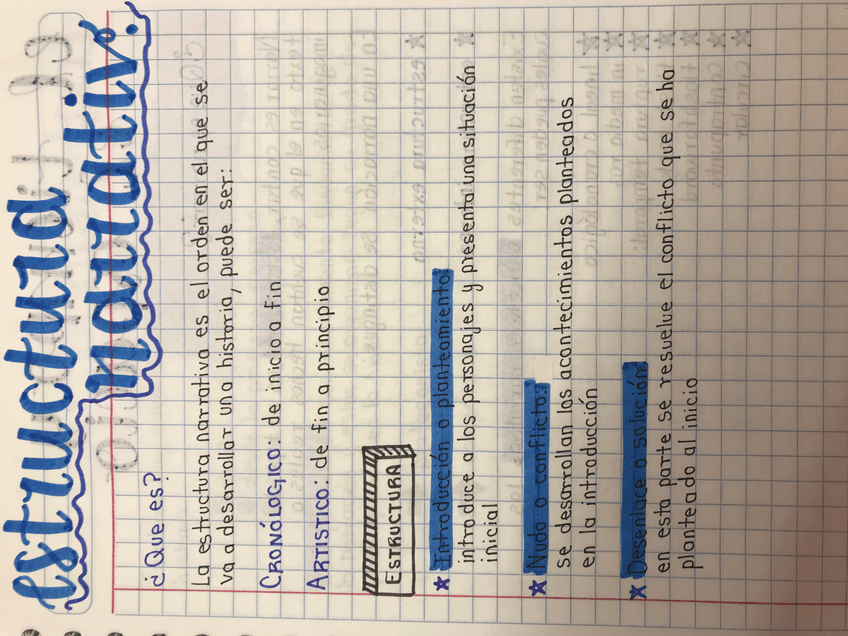 estructura
narrativ
¿Que es?
La estructura narrativa es el orden en el que se
va a desarrollar una historia, puede ser:
CRONÓLOGICO: de inicio a fin
ARTISTICO: de fin a principio
ESTRUCTURA
Introducción o planteamiento:
introduce a los personajes y presenta una situación
inicial
Nudo o conflicto:
se desarrollan los acontecimientos planteados
en la introducción
Desenlace o solución:
en esta parte se resuelve el conflicto que se ha
planteado al inicio